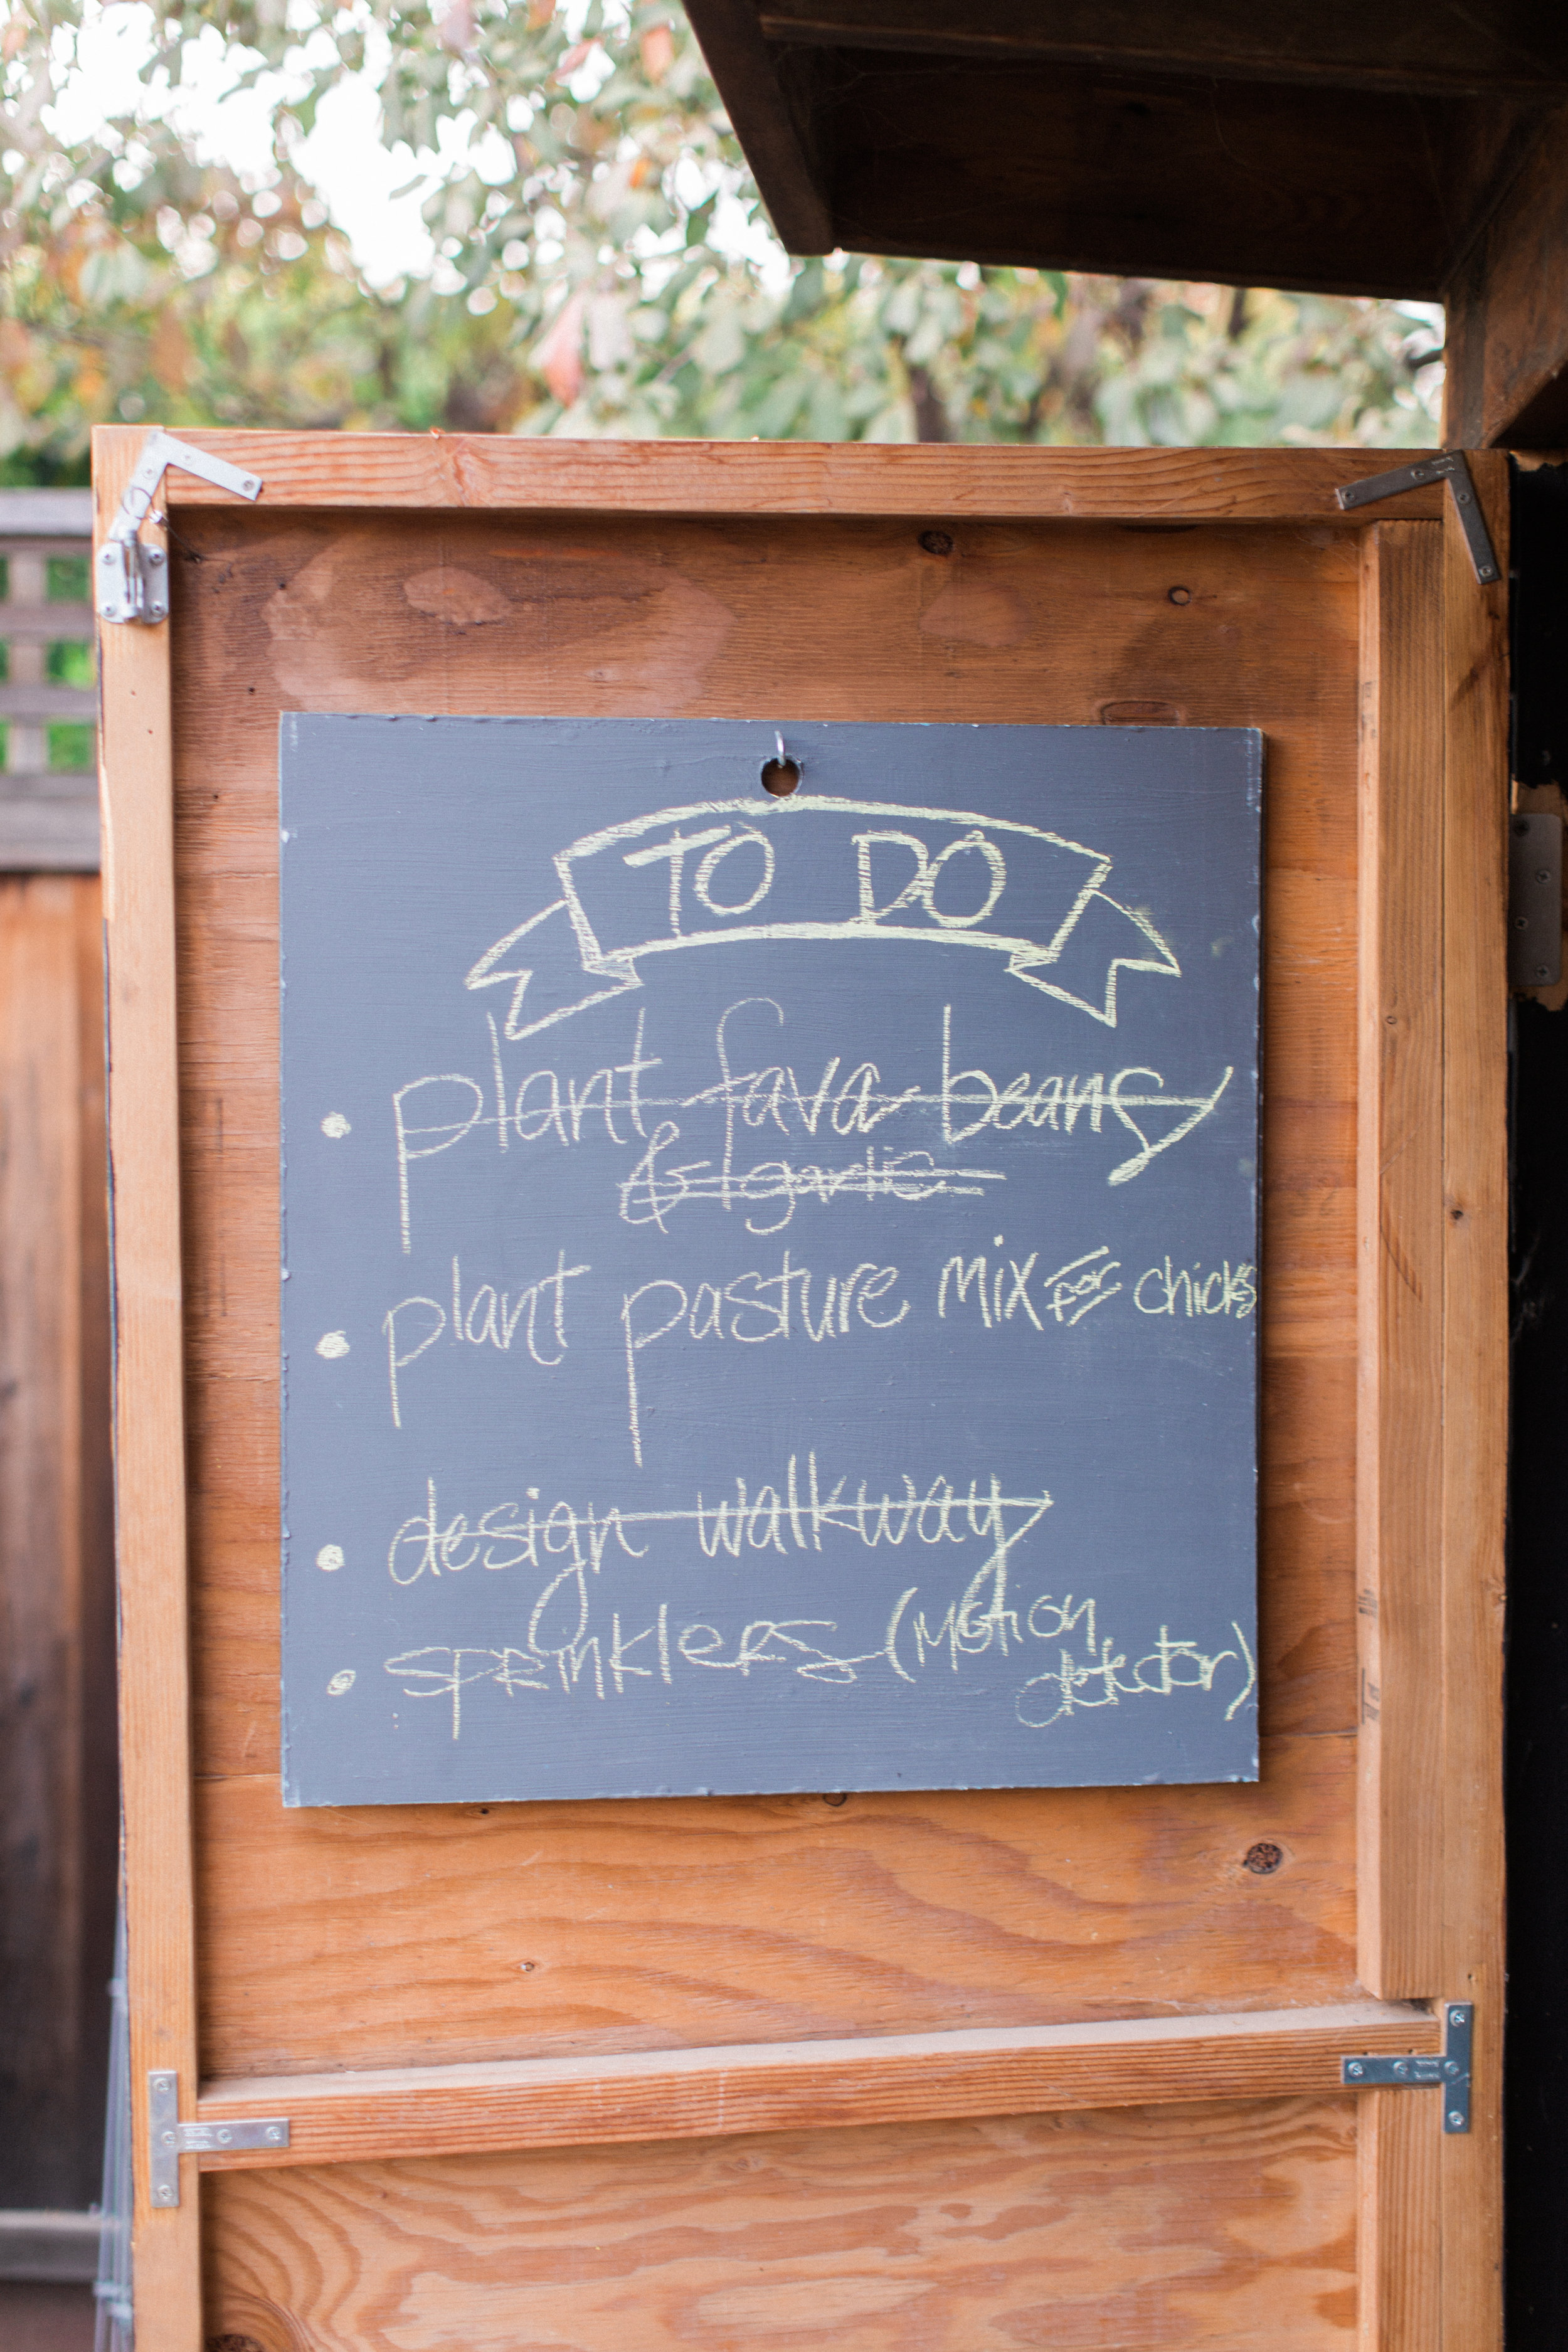 TO DO
• plant fava beans
& garlic
• plant pasture mix for chicks
• design walkway
• sprinklers (motion
detector)